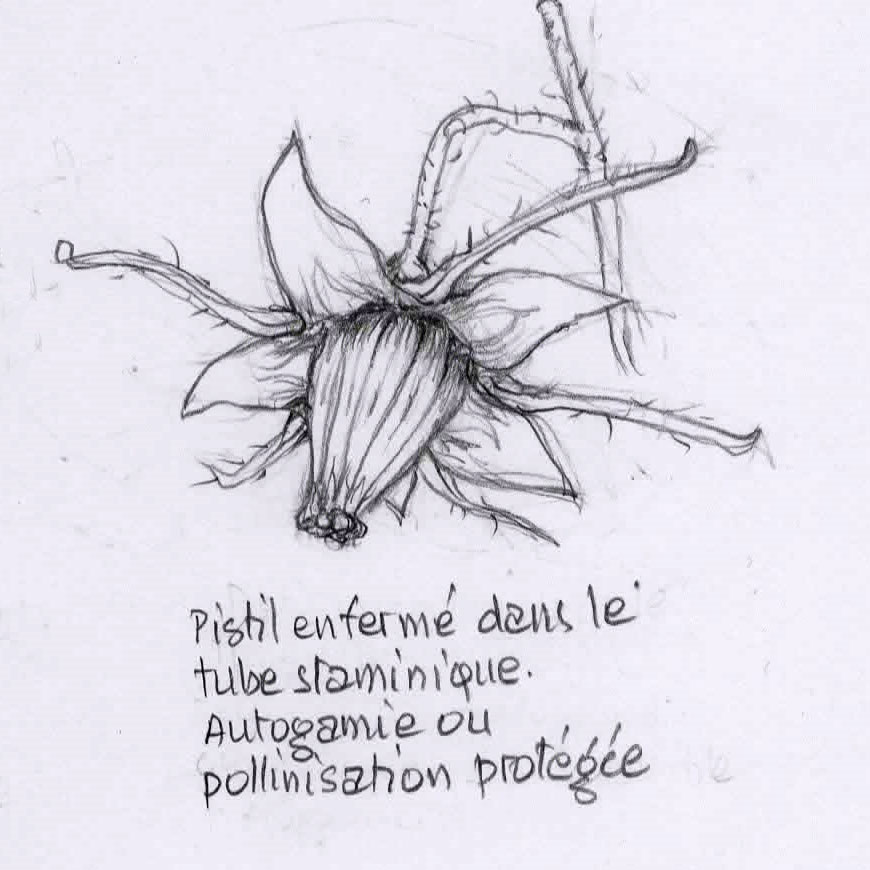 Pistil enfermé dans le
tube staminique.
Autogamie ou
pollinisation protégée